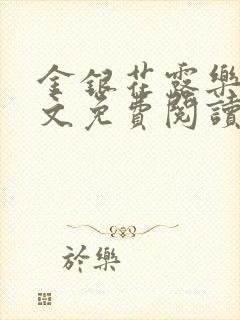 金銀花露樂
文免費閱讀
於樂